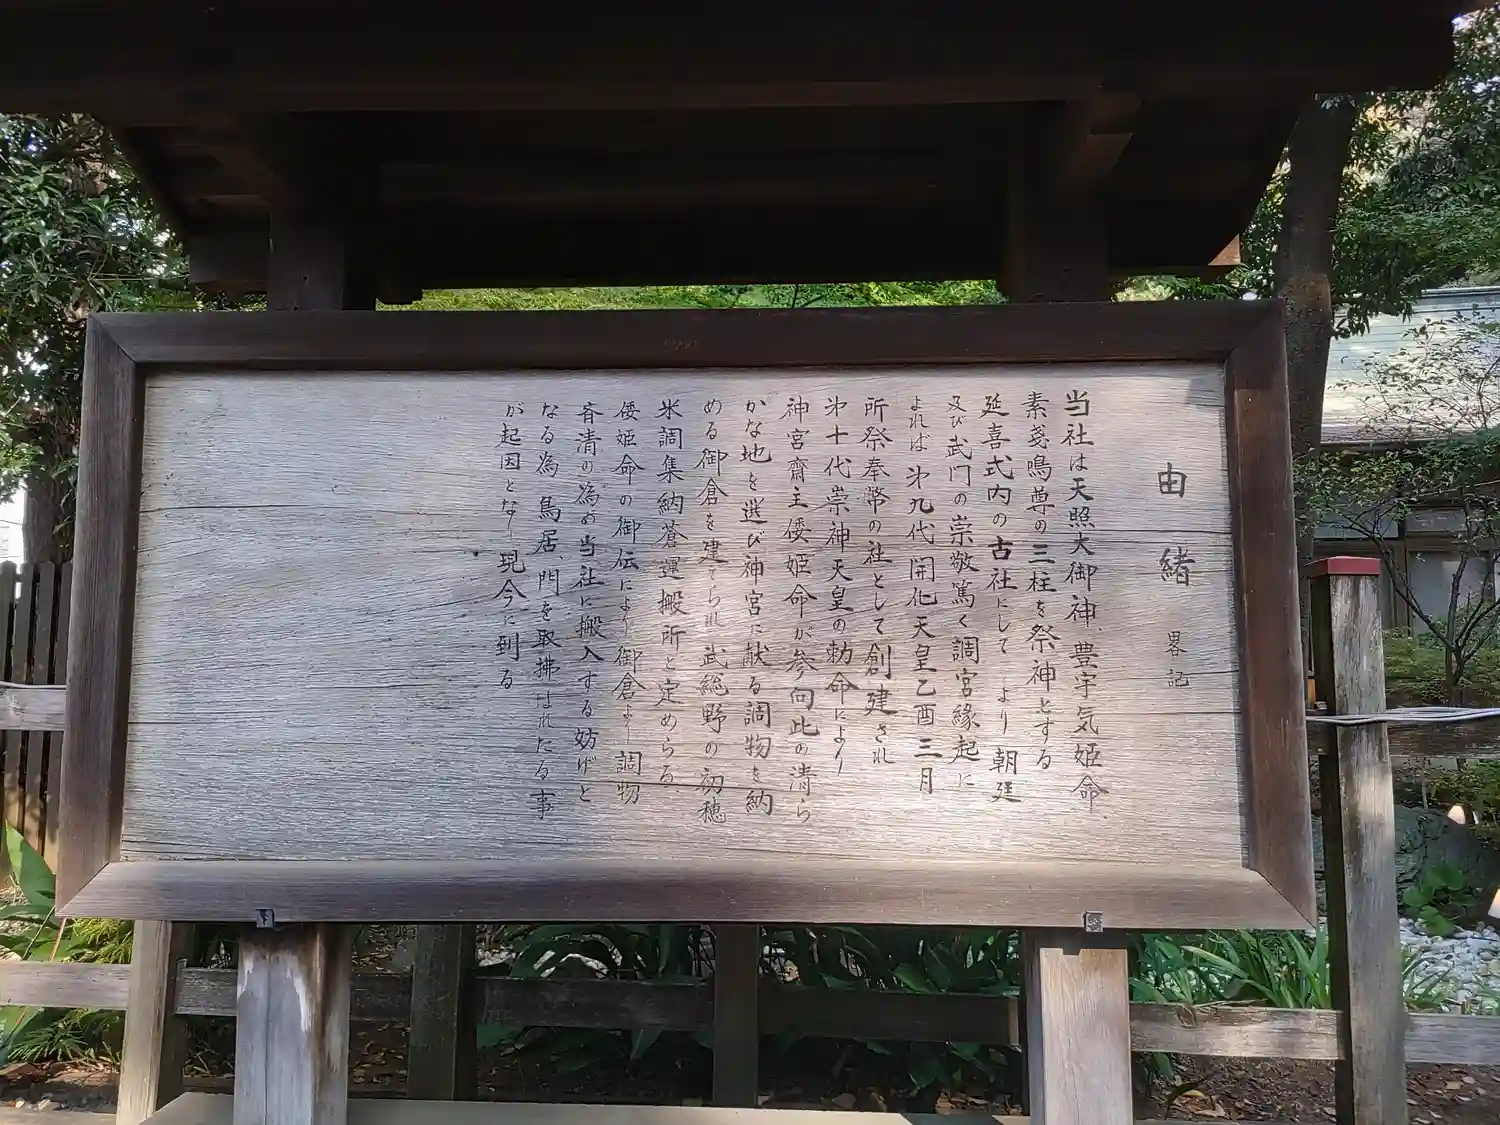 由緒 畧記
当社は天照大御神、豊宇気姫命、
素戔鳴尊の三柱を祭神とする
延喜式内の古社にして より朝廷
及び武門の崇敬篤く調宮縁起に
よれば 第九代開化天皇乙酉三月
所祭奉幣の社として創建され
第十代崇神天皇の勅命により
神宮齋主倭姫命が参向此の清ら
かな地を選び神宮に献る調物を納
める御倉を建てられ武総野の初穂
米調集納蒼運搬所と定めらる、
倭姫命の御伝により御倉より調物
斉清の為め当社に搬入する妨げと
なる為 鳥居、門を取拂はれたる事
が起因となり現今に到る